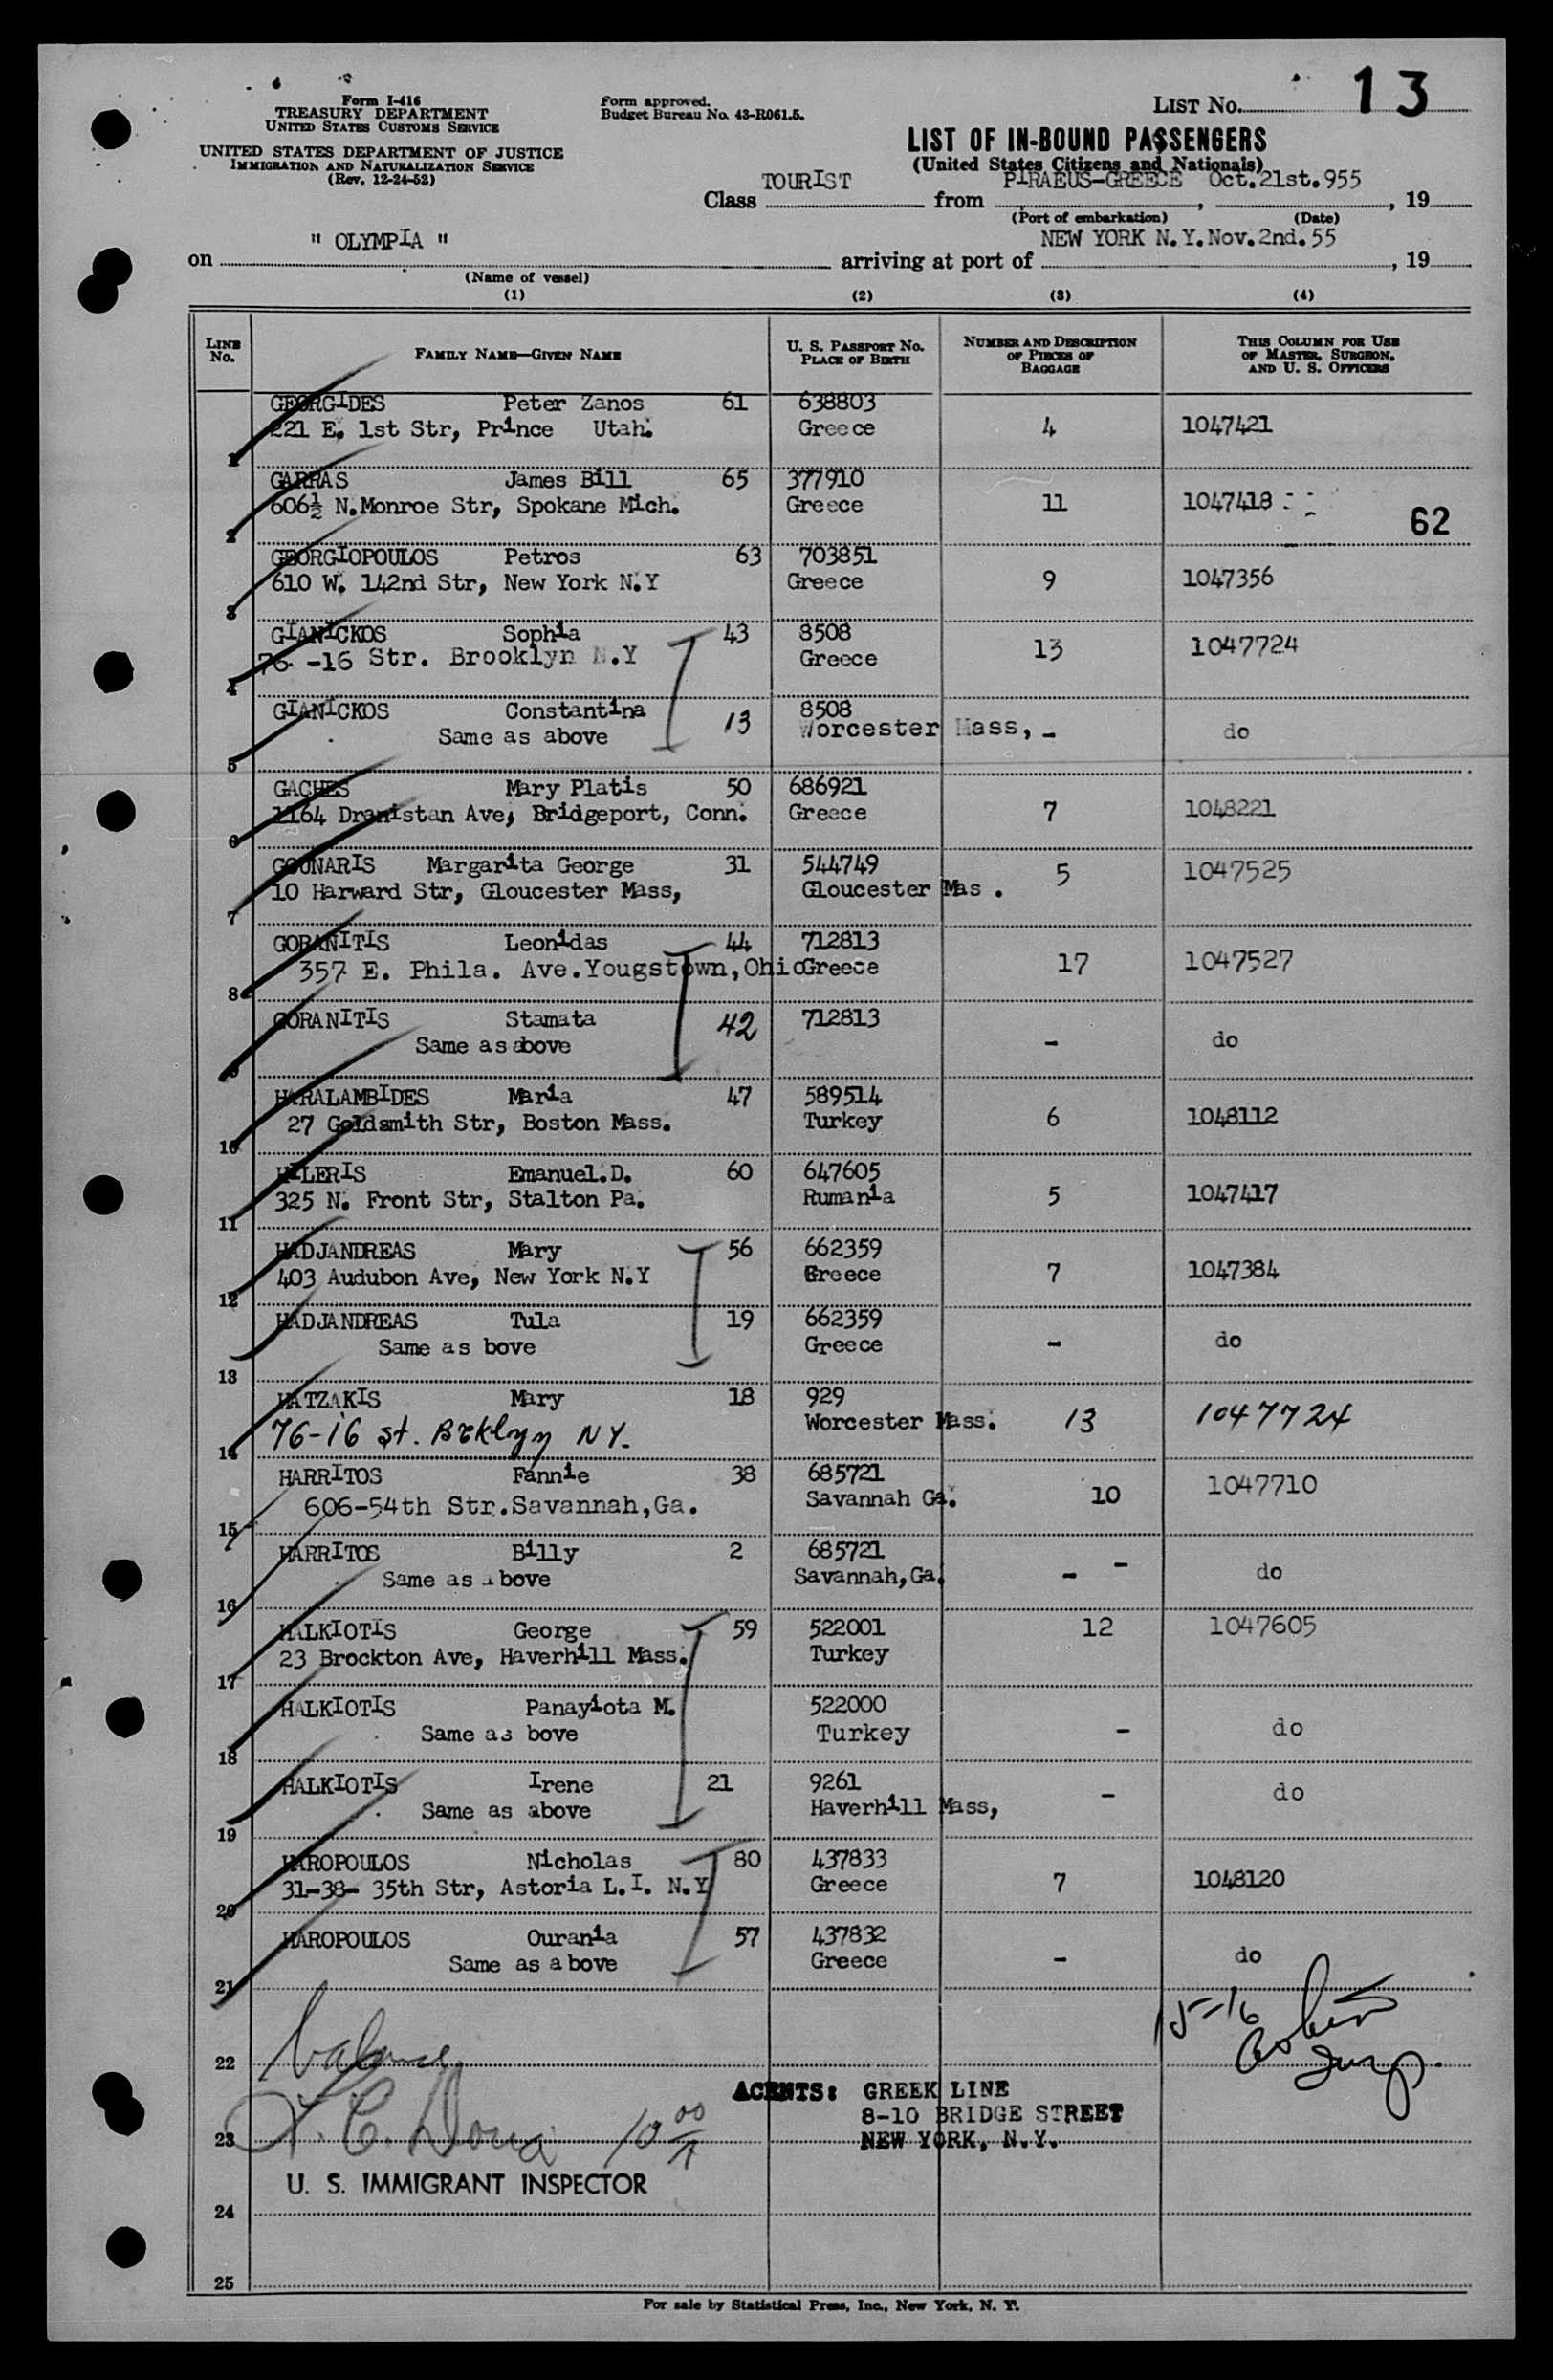 13
Form I-416
TREASURY DEPARTMENT
UNITED STATES CUSTOMS SERVICE
UNITED STATES DEPARTMENT OF JUSTICE
IMMIGRATION AND NATURALIZATION SERVICE
(Rev. 12-24-52)
Form approved.
Budget Bureau No. 43-R061.5.
LIST No.
LIST OF IN-BOUND PASSENGERS
(United States Citizens and Nationals)
Class TOURIST from PIRAEUS-GREECE, Oct.21st.955, 19
(Port of embarkation) (Date)
on " OLYMPIA " arriving at port of NEW YORK N.Y. Nov.2nd.55, 19
(Name of vessel)
(1) (2) (3) (4)
LINE No. FAMILY NAME—GIVEN NAME U. S. PASSPORT No. PLACE OF BIRTH NUMBER AND DESCRIPTION OF PIECES OF BAGGAGE THIS COLUMN FOR USE OF MASTER, SURGEON, AND U. S. OFFICERS
GEORGIDES Peter Zanos 61 638803
1 221 E. 1st Str, Prince Utah. Greece 4 1047421
GARRAS James Bill 65 377910
2 606½ N.Monroe Str, Spokane Mich. Greece 11 1047418 62
GEORGIOPOULOS Petros 63 703851
3 610 W. 142nd Str, New York N.Y Greece 9 1047356
GIANICKOS Sophia 43 8508
4 76 -16 Str. Brooklyn N.Y Greece 13 1047724
GIANICKOS Constantina 13 8508
5 Same as above Worcester Mass, - do
GACHES Mary Platis 50 686921
6 1164 Dranistan Ave, Bridgeport, Conn. Greece 7 1048221
GOUNARIS Margarita George 31 544749
7 10 Harward Str, Gloucester Mass, Gloucester Mas . 5 1047525
GORANITIS Leonidas 44 712813
8 357 E. Phila. Ave.Yougstown,Ohio Greece 17 1047527
GORANITIS Stamata 42 712813
9 Same as above - do
HARALAMBIDES Maria 47 589514
10 27 Goldsmith Str, Boston Mass. Turkey 6 1048112
HILERIS Emanuel.D. 60 647605
11 325 N. Front Str, Stalton Pa. Rumania 5 1047417
HADJANDREAS Mary 56 662359
12 403 Audubon Ave, New York N.Y Greece 7 1047384
HADJANDREAS Tula 19 662359
13 Same as bove Greece - do
HATZAKIS Mary 18 929
14 76-16 st. Brklyn NY. Worcester Mass. 13 1047724
HARRITOS Fannie 38 685721
15 606-54th Str.Savannah,Ga. Savannah Ga. 10 1047710
HARRITOS Billy 2 685721
16 Same as above Savannah,Ga. - - do
HALKIOTIS George 59 522001 12 1047605
17 23 Brockton Ave, Haverhill Mass. Turkey
HALKIOTIS Panayiota M. 522000
18 Same as bove Turkey - do
HALKIOTIS Irene 21 9261
19 Same as above Haverhill Mass, - do
HAROPOULOS Nicholas 80 437833
20 31-38- 35th Str, Astoria L.I. N.Y Greece 7 1048120
HAROPOULOS Ourania 57 437832
21 Same as above Greece - do
15-16
22 balance
AGENTS: GREEK LINE
8-10 BRIDGE STREET
23 NEW YORK, N.Y.
U. S. IMMIGRANT INSPECTOR
24
25
For sale by Statistical Press, Inc., New York, N. Y.